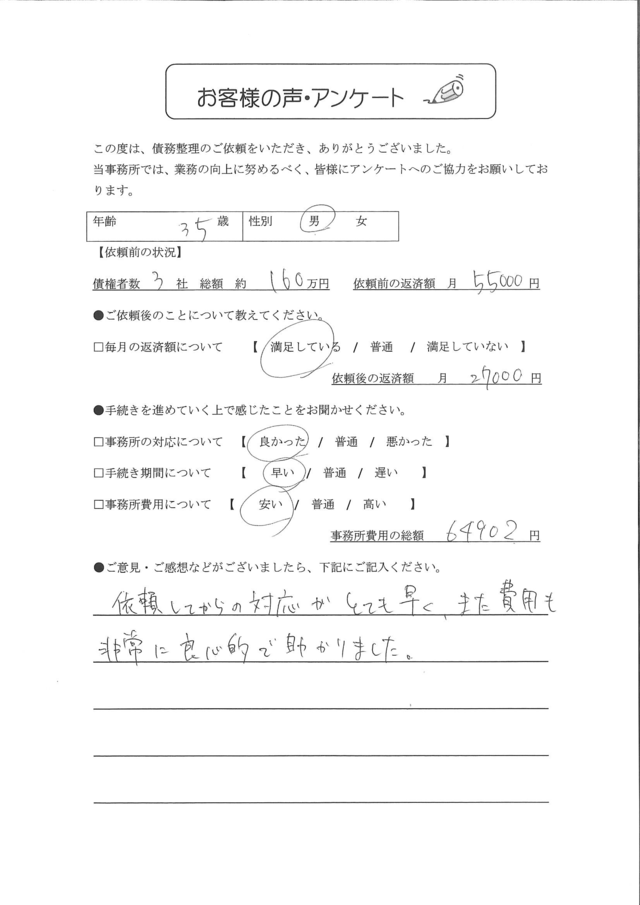 お客様の声・アンケート
この度は、債務整理のご依頼をいただき、ありがとうございました。
当事務所では、業務の向上に努めるべく、皆様にアンケートへのご協力をお願いしてお
ります。
年齢 35 歳 性別 男 女
【依頼前の状況】
債権者数 3 社 総額 約 160 万円 依頼前の返済額 月 55000 円
●ご依頼後のことについて教えてください。
□毎月の返済額について 【 満足している / 普通 / 満足していない 】
依頼後の返済額 月 27000 円
●手続きを進めていく上で感じたことをお聞かせください。
□事務所の対応について 【 良かった / 普通 / 悪かった 】
□手続き期間について 【 早い / 普通 / 遅い 】
□事務所費用について 【 安い / 普通 / 高い 】
事務所費用の総額 64902 円
●ご意見・ご感想などがございましたら、下記にご記入ください。
依頼してからの対応がとても早く、また費用も
非常に良心的で助かりました。